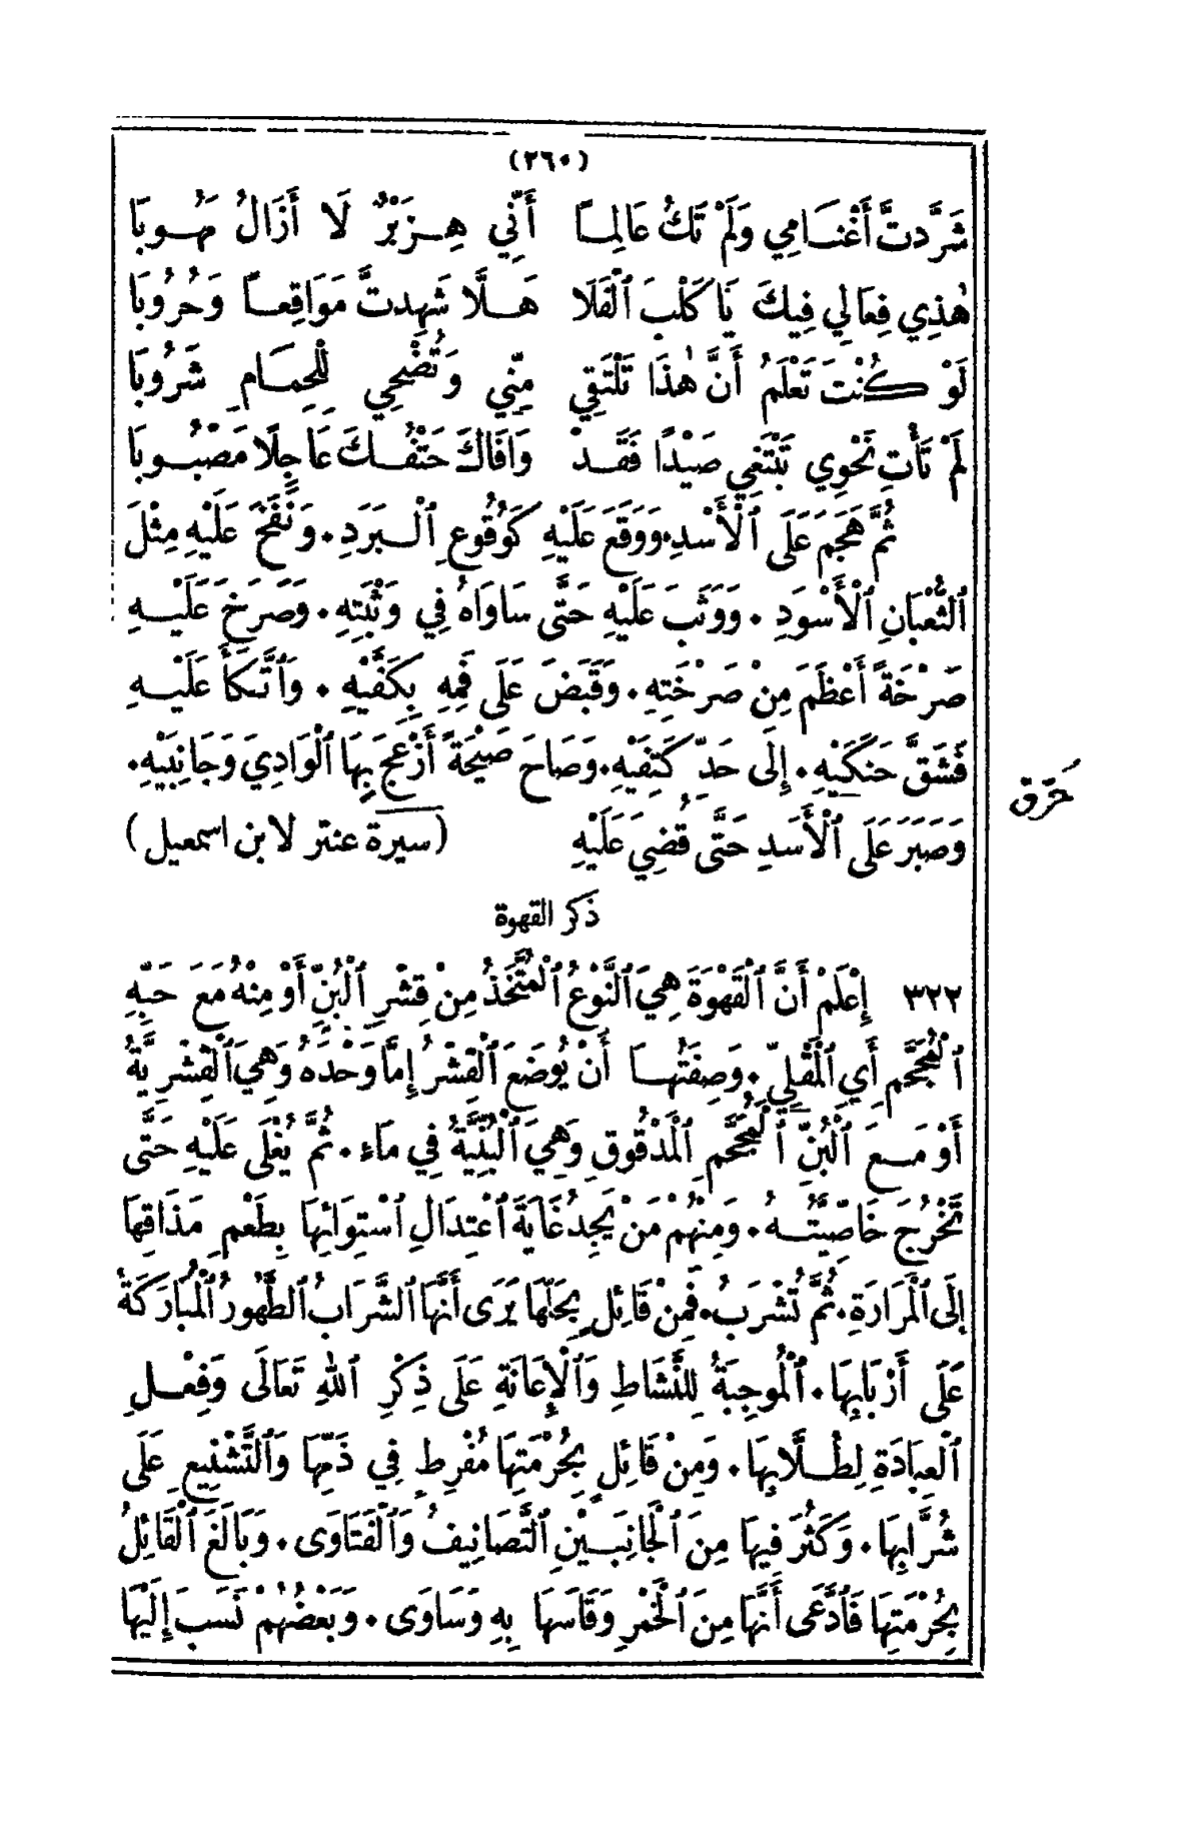 (٢٦٠)
شَرَّدتَّ أَغْنَامِي وَلَمْ تَكُ عَالِمًا أَنِّي هِزَبْرٌ لَا أَزَالُ مَهُوبَا
هٰذِي فِعَالِي فِيكَ يَا كَلْبَ ٱلْفَلَا هَلَّا شَهِدتَّ مَوَاقِعًا وَحُرُوبَا
لَوْ كُنْتَ تَعْلَمُ أَنَّ هٰذَا تَلْتَقِي مِنِّي وَتُضْحِي لِلْحِمَامِ شَرُوبَا
لَمْ تَأْتِ نَحْوِي تَبْتَغِي صَيْدًا فَقَدْ وَافَاكَ حَتْفُكَ عَاجِلًا مَصْبُوبَا
ثُمَّ هَجَمَ عَلَى ٱلْأَسْدِ. وَوَقَعَ عَلَيْهِ كَوُقُوعِ ٱلْبَرَدِ. وَنَفَخَ عَلَيْهِ مِثْلَ
ٱلثُّعْبَانِ ٱلْأَسْوَدِ. وَوَثَبَ عَلَيْهِ حَتَّى سَاوَاهُ فِي وَثْبَتِهِ. وَصَرَخَ عَلَيْهِ
صَرْخَةً أَعْظَمَ مِنْ صَرْخَتِهِ. وَقَبَضَ عَلَى فَمِهِ بِكَفَّيْهِ. وَٱتَّكَأَ عَلَيْهِ
فَشَقَّ حَنَكَيْهِ. إِلَى حَدِّ كَتِفَيْهِ. وَصَاحَ صَيْحَةً أَزْعَجَ بِهَا ٱلْوَادِيَ وَجَانِبَيْهِ.
وَصَبَرَ عَلَى ٱلْأَسَدِ حَتَّى قُضِيَ عَلَيْهِ (سيرة عنتر لابن اسمعيل)
ذكر القهوة
٣٢٢ إِعْلَمْ أَنَّ ٱلْقَهْوَةَ هِيَ ٱلنَّوْعُ ٱلْمُتَّخَذُ مِنْ قِشْرِ ٱلْبُنِّ أَوْ مِنْهُ مَعَ حَبِّهِ
ٱلْمُجَحَّمِ أَيِ ٱلْمَقْلِيِّ. وَصِفَتُهَا أَنْ يُوضَعَ ٱلْقِشْرُ إِمَّا وَحْدَهُ وَهِيَ ٱلْقِشْرِيَّةُ
أَوْ مَعَ ٱلْبُنِّ ٱلْمُجَحَّمِ ٱلْمَدْقُوقِ وَهِيَ ٱلْبُنِّيَّةُ فِي مَاءٍ. ثُمَّ يُغْلَى عَلَيْهِ حَتَّى
تَخْرُجَ خَاصِّيَّتُهُ. وَمِنْهُمْ مَنْ يَجِدُ غَايَةَ ٱعْتِدَالِ ٱسْتِوَائِهَا بِطَعْمِ مَذَاقِهَا
إِلَى ٱلْمَرَارَةِ. ثُمَّ تُشْرَبُ. فَمِنْ قَائِلٍ بِحِلِّهَا يَرَى أَنَّهَا ٱلشَّرَابُ ٱلطَّهُورُ ٱلْمُبَارَكَةُ
عَلَى أَرْبَابِهَا. ٱلْمُوجِبَةُ لِلنَّشَاطِ وَٱلْإِعَانَةِ عَلَى ذِكْرِ ٱللهِ تَعَالَى وَفِعْلِ
ٱلْعِبَادَةِ لِطُلَّابِهَا. وَمِنْ قَائِلٍ بِحُرْمَتِهَا مُفْرِطٍ فِي ذَمِّهَا وَٱلتَّشْنِيعِ عَلَى
شُرَّابِهَا. وَكَثُرَ فِيهَا مِنَ ٱلْجَانِبَيْنِ ٱلتَّصَانِيفُ وَٱلْفَتَاوَى. وَبَالَغَ ٱلْقَائِلُ
بِحُرْمَتِهَا فَٱدَّعَى أَنَّهَا مِنَ ٱلْخَمْرِ وَقَاسَهَا بِهِ وَسَاوَى. وَبَعْضُهُمْ نَسَبَ إِلَيْهَا